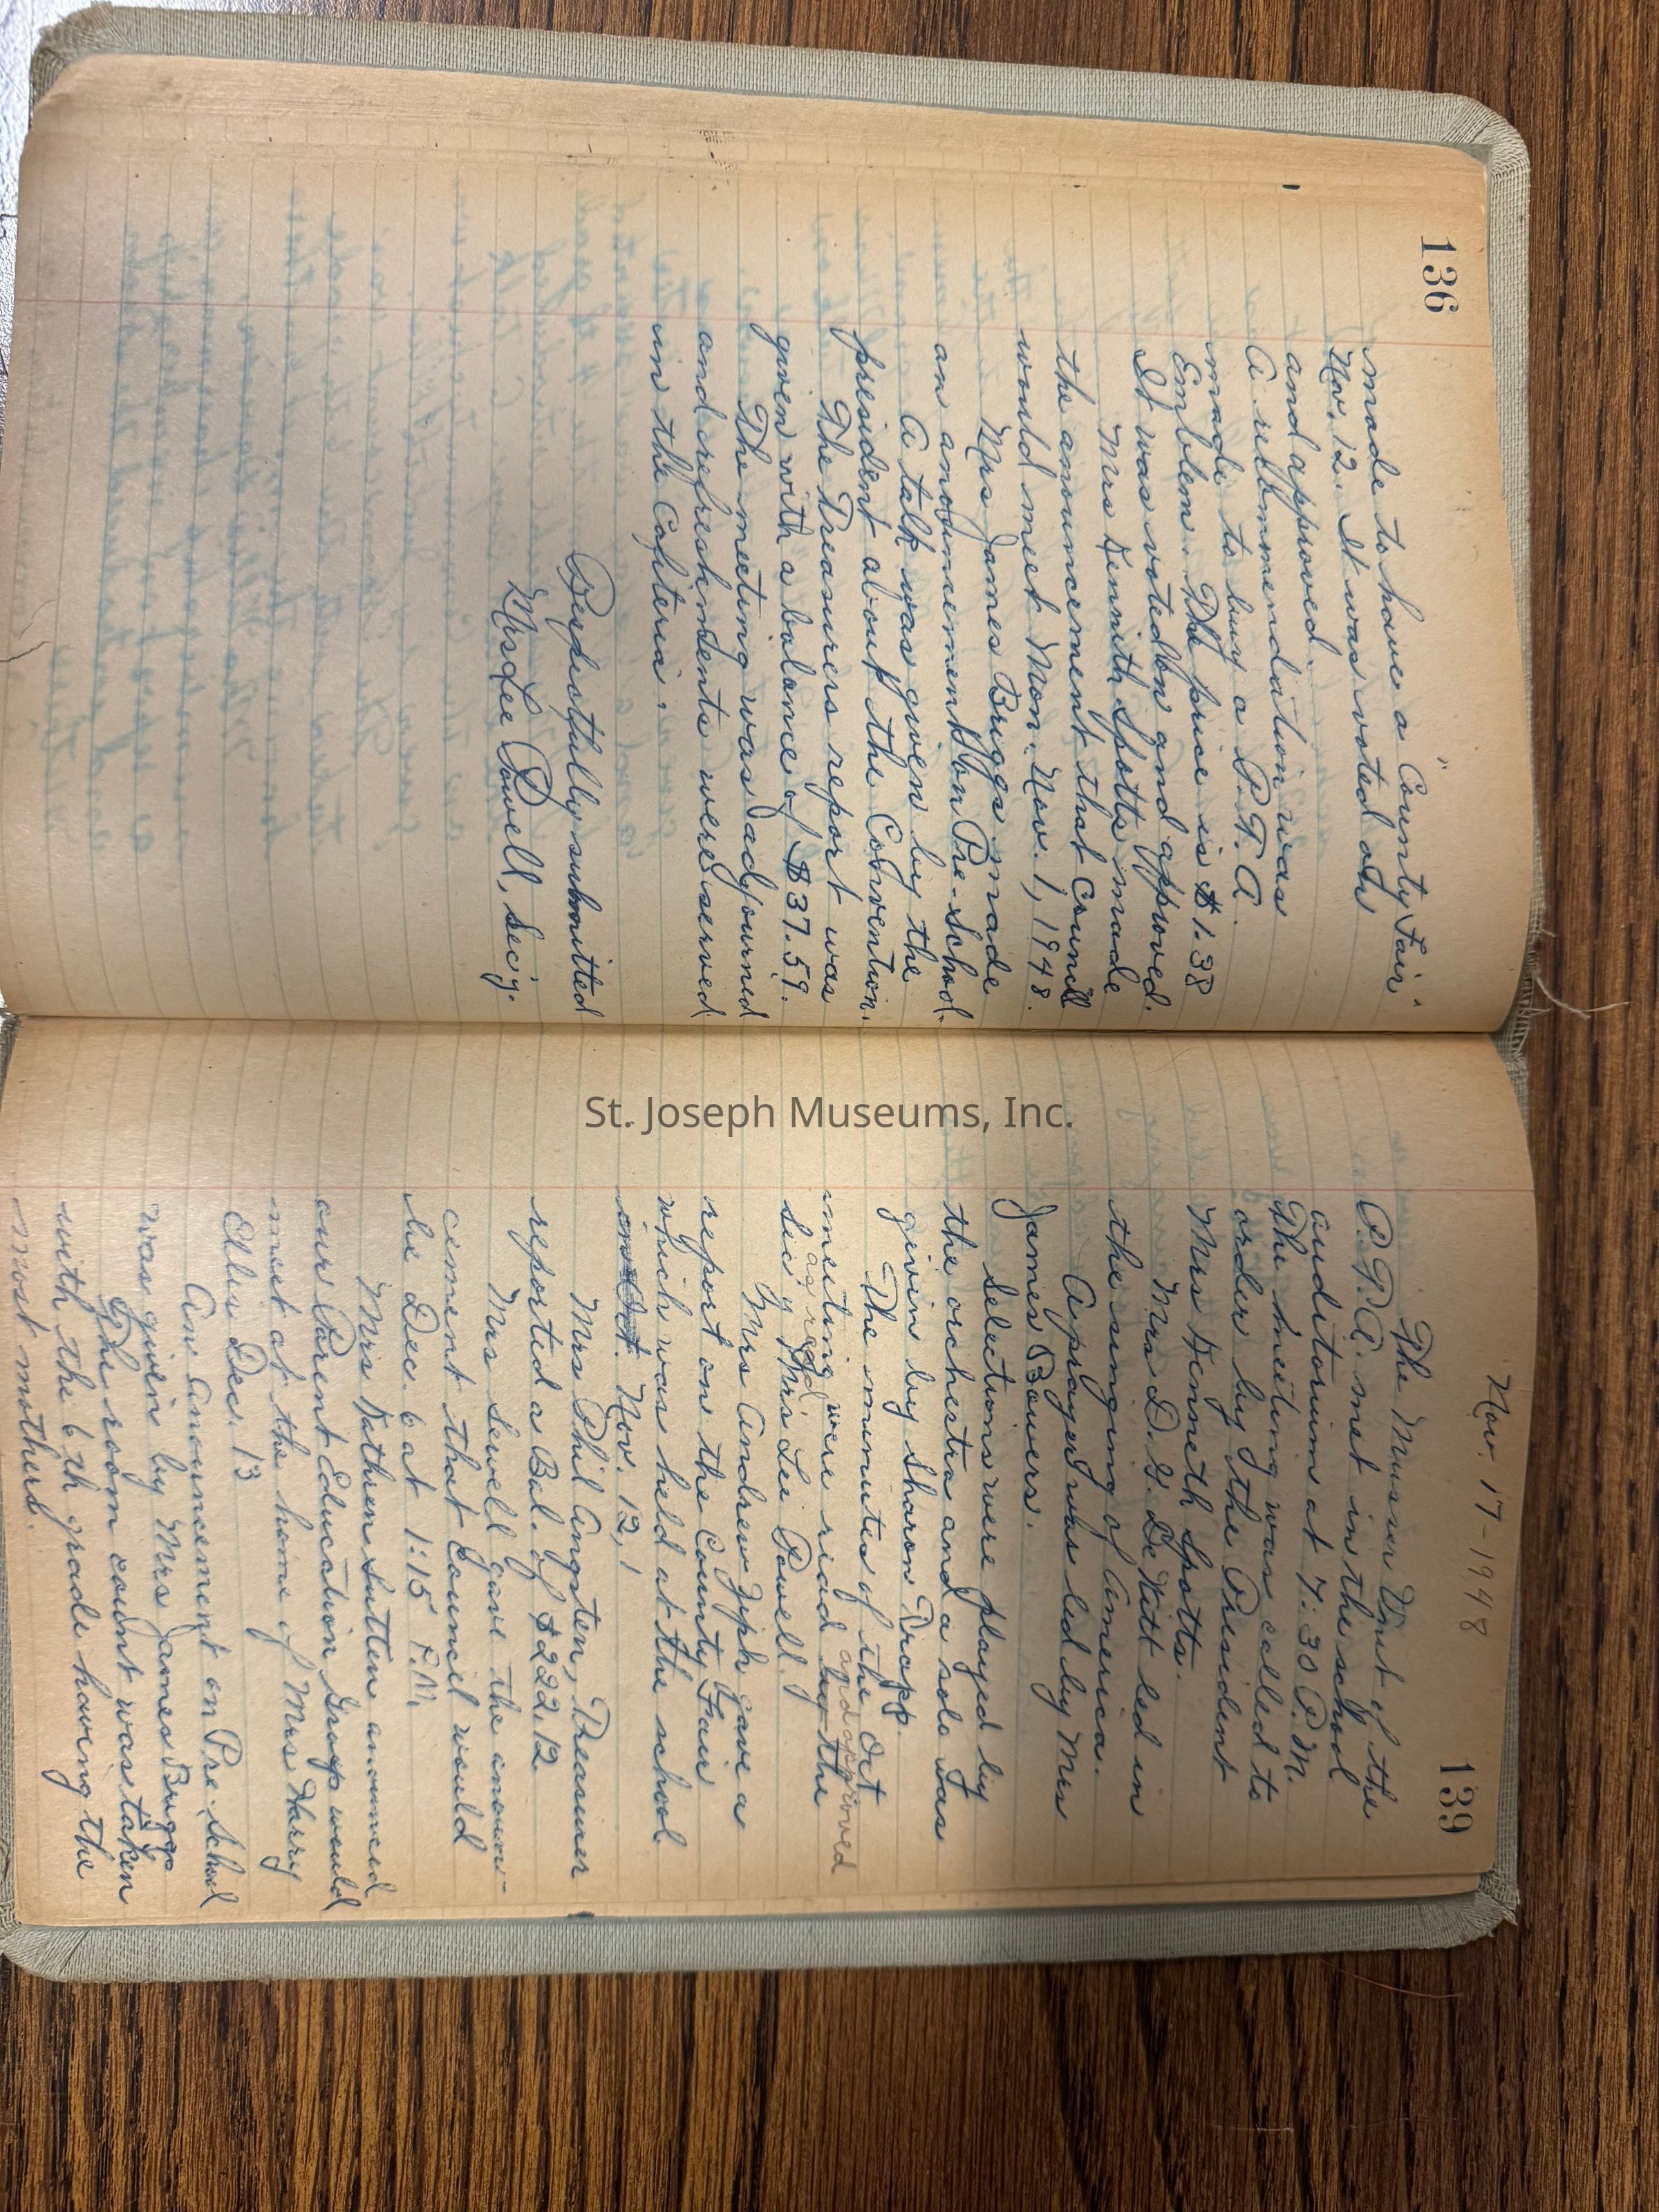 136
made to have a "County Fair"
Nov. 12. It was voted on
and approved.
A reccommendation was
made to buy a P.T.A.
Emblem. The price is $1.38
It was voted on and approved.
Mrs Kennith Spotts made
the anouncement that Council
would meet Mon. Nov. 1, 1948.
Mrs James Briggs made
an anouncement on Pre-School.
A talk was given by the
president about the Convention.
The Treasurers report was
given with a balance of $37.59.
The meeting was adjourned
and refreshments were served
in the Cafateria.
Respectfully submitted
Mrs Lee Powell, Sec'y.
139
Nov. 17-1948
The Musser Unit of the
P.T.A. met in the school
auditorium at 7:30 P.M.
The meeting was called to
order by the President
Mrs Kenneth Spotts.
Mrs D. G. DeWitt led in
the singing of America.
A prayer was led by Mrs
James Bowers.
Selections were played by
the orchestra and a solo was
given by Sharon Trapp.
The minutes of the Oct
meeting were read by the
as read and approved
Sec'y Mrs Lee Powell.
Mrs Andrew Ziph gave a
report on the County Fair
which was held at the school
on Oct. Nov. 12,
Mrs Phil Angsten, Treasurer
reported a Bal. of $222.12
Mrs Sewell gave the anoun-
cement that Council would
be Dec. 6 at 1:15 P.M.
Mrs Kathren Sutten anounced
our Parent Education Group would
meet at the home of Mrs Harry
Ellis Dec. 13
An anouncement on Pre-School
was given by Mrs James Briggs
The room count was taken
with the 6th grade having the
most mothers.
St. Joseph Museums, Inc.